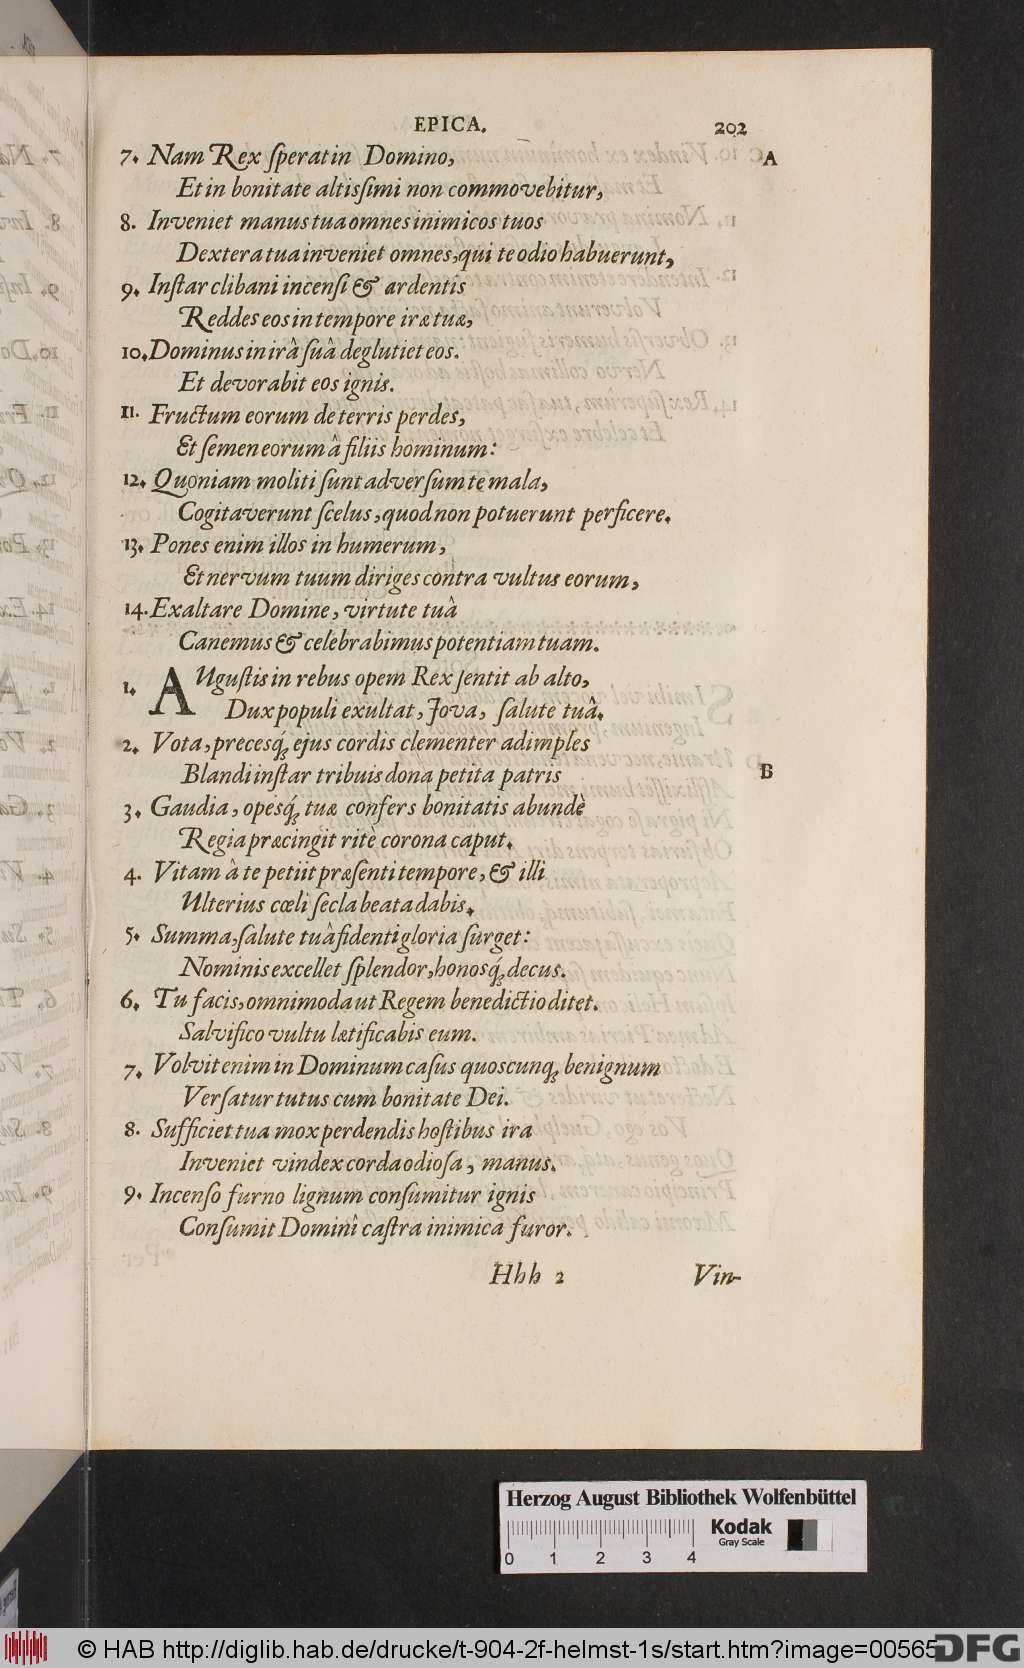 EPICA. 202
7. Nam Rex ſperat in Domino, A
Et in bonitate altisſimi non commovebitur,
8. Inveniet manus tua omnes inimicos tuos
Dextera tua inveniet omnes, qui te odio habuerunt,
9. Inſtar clibani incenſi & ardentis
Reddes eos in tempore iræ tuæ,
10. Dominus in irâ ſuâ deglutiet eos.
Et devorabit eos ignis.
11. Fructum eorum de terris perdes,
Et ſemen eorum â filiis hominum:
12. Quoniam moliti ſunt adverſum te mala,
Cogitaverunt ſcelus, quod non potuerunt perficere.
13. Pones enim illos in humerum,
Et nervum tuum diriges contra vultus eorum,
14. Exaltare Domine, virtute tuâ
Canemus & celebrabimus potentiam tuam.
1. AUguſtis in rebus opem Rex ſentit ab alto,
Dux populi exultat, Jova, ſalute tuâ.
2. Vota, precesq́; ejus cordis clementer adimples
Blandi inſtar tribuis dona petita patris B
3. Gaudia, opesq́; tuæ confers bonitatis abundè
Regia præcingit ritè corona caput.
4. Vitam à te petiit præſenti tempore, & illi
Ulterius cœli ſecla beata dabis.
5. Summa, ſalute tuâ fidenti gloria ſurget:
Nominis excellet ſplendor, honosq́; decus.
6. Tu facis, omnimoda ut Regem benedictio ditet.
Salvifico vultu lætificabis eum.
7. Volvit enim in Dominum caſus quoscunq; benignum
Verſatur tutus cum bonitate Dei.
8. Sufficiet tua mox perdendis hoſtibus ira
Inveniet vindex corda odioſa, manus.
9. Incenſo furno lignum conſumitur ignis
Conſumit Domini caſtra inimica furor.
Hhh 2 Vin-
Herzog August Bibliothek Wolfenbüttel
Kodak
Gray Scale
0 1 2 3 4
© HAB http://diglib.hab.de/drucke/t-904-2f-helmst-1s/start.htm?image=00565
DFG